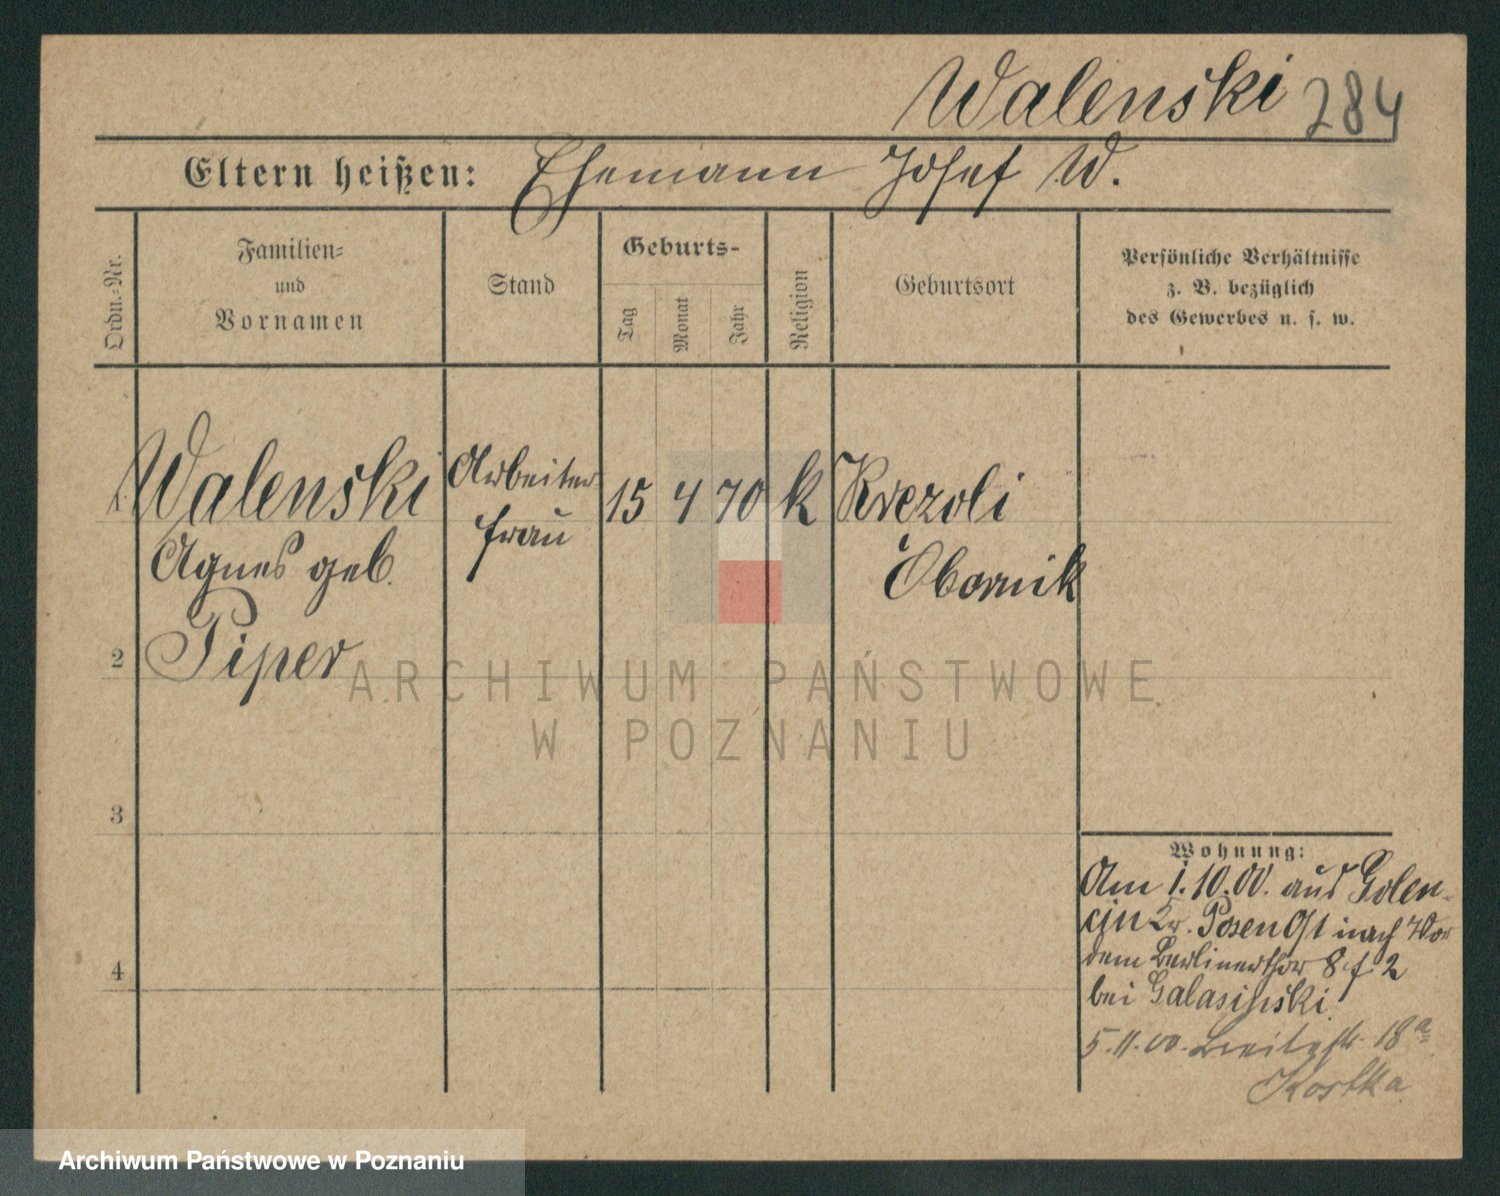 Walenski 284
Eltern heißen: Ehemann Josef W.
Ordn.-Nr.
Familien-
und
Vornamen
Stand
Geburts-
Tag
Monat
Jahr
Religion
Geburtsort
Persönliche Verhältnisse
z. B. bezüglich
des Gewerbes u. s. w.
1. Walenski Arbeiter 15 4 70 k
frau
Agnes geb. Obornik
2 Piper
3
4
Wohnung:
Am 1.10.00. aus Golen-
cin Kr. Posen Ost nach Vor
dem Berlinerthor 8 f 2
bei
5.11.00. 18a
Kostka
ARCHIWUM PAŃSTWOWE
W POZNANIU
Archiwum Państwowe w Poznaniu